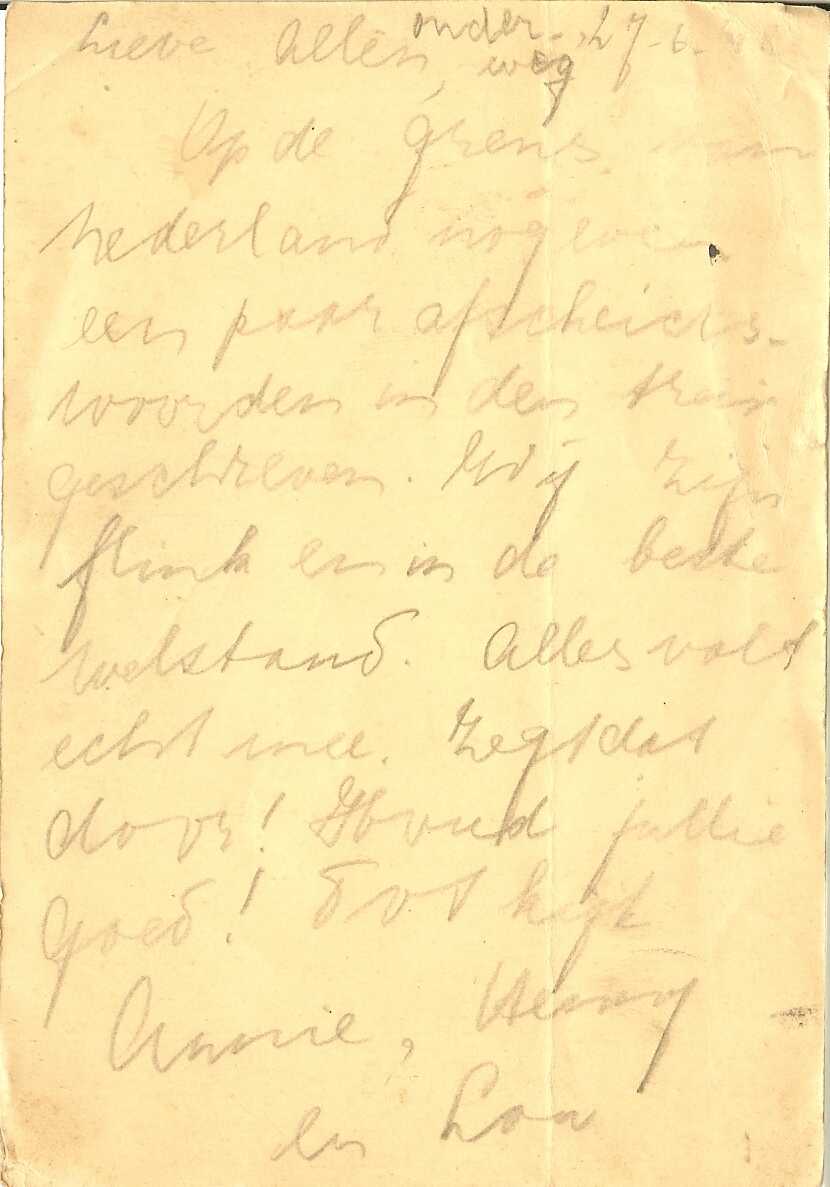 Lieve Allen, onder-
weg 27-6-
Op de grens van
Nederland nog even
een paar afscheids-
woorden in den trein
geschreven. Wij zijn
flink en in de beste
welstand. Alles valt
echt mee. Zegt dat
door! Houd jullie
goed! Tot kijk
Annie, Henny
en Lou